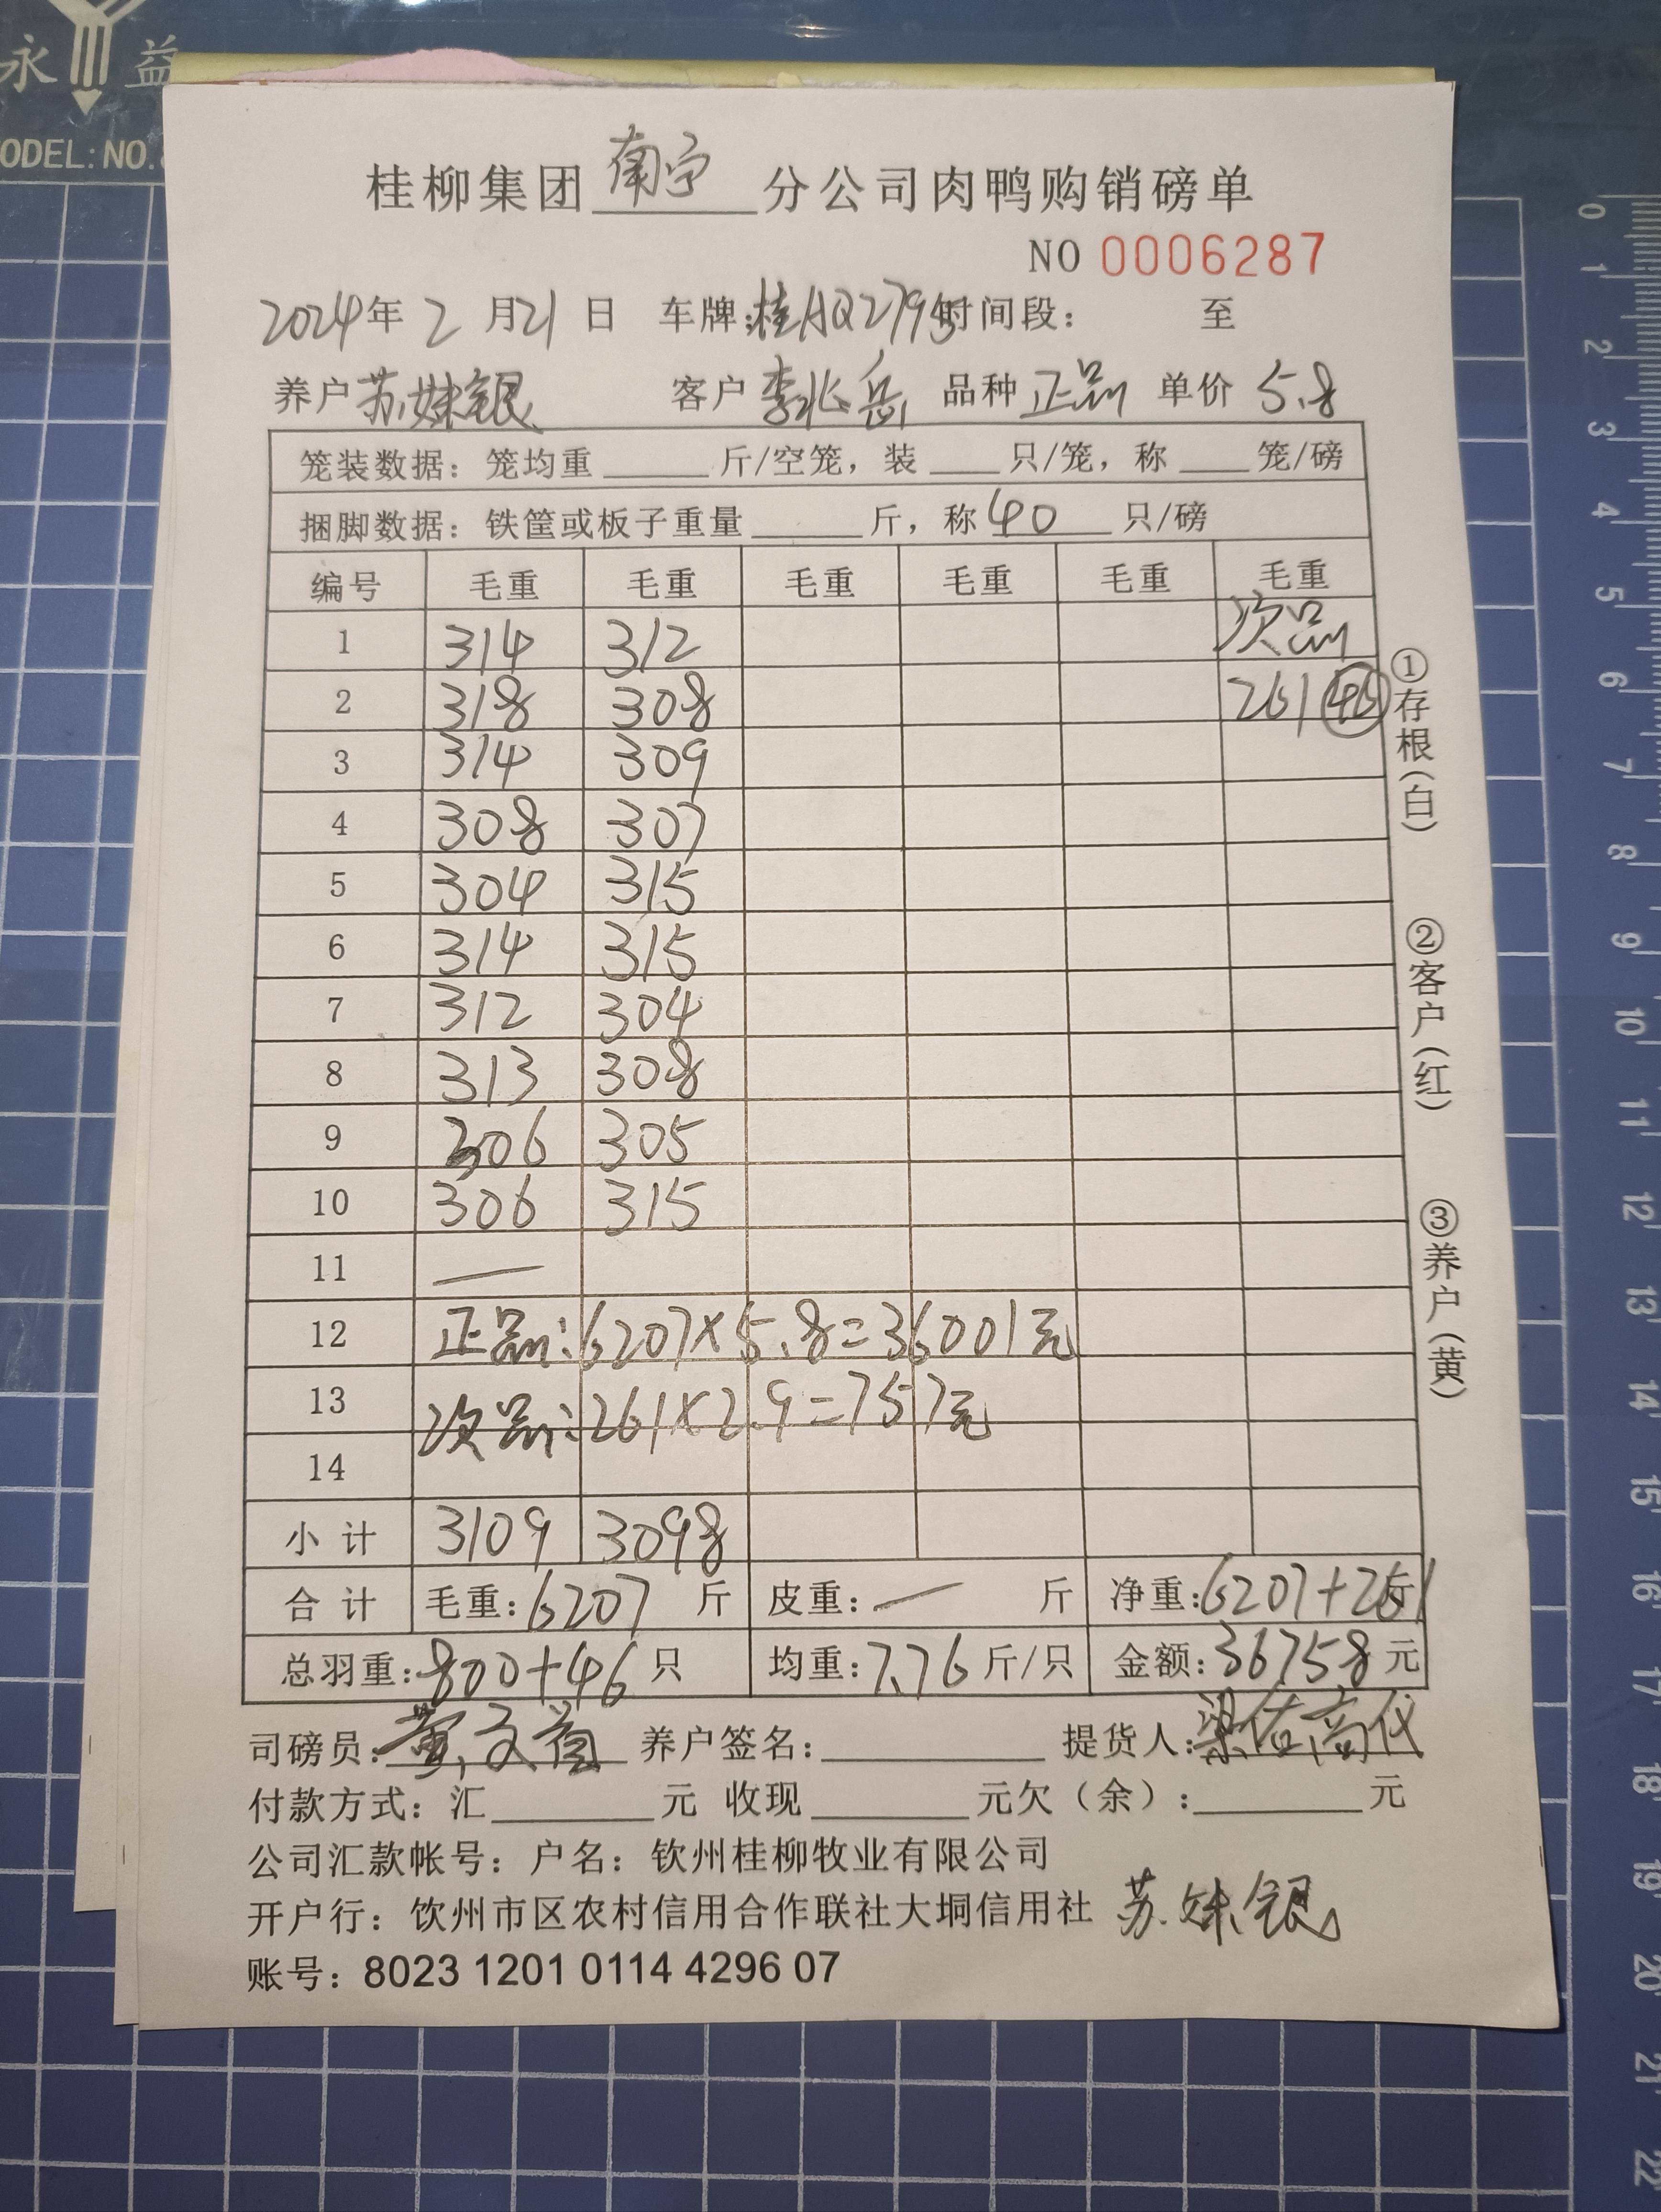 永 益
MODEL:NO.
桂柳集团 南宁 分公司肉鸭购销磅单
NO 0006287
2024年 2 月 21 日 车牌:桂AQ279 时间段: 至
养户 苏妹银 客户 李兆岳 品种 正品 单价 5.8
笼装数据: 笼均重 斤/空笼, 装 只/笼, 称 笼/磅
捆脚数据: 铁筐或板子重量 斤, 称 40 只/磅
编号 毛重 毛重 毛重 毛重 毛重 毛重
1 314 312 次品
2 318 308 261 46
3 314 309
4 308 307
5 304 315
6 314 315
7 312 304
8 313 308
9 306 305
10 306 315
11 —
12 正品:6207×5.8=36001元
13 次品:261×2.9=757元
14
小计 3109 3098
合计 毛重:6207 斤 皮重: — 斤 净重:6207+261斤
总羽重:800+46 只 均重:7.76 斤/只 金额:36758 元
司磅员:黄文 养户签名: 提货人:梁佑高代
付款方式: 汇 元 收现 元欠(余): 元
公司汇款帐号: 户名: 钦州桂柳牧业有限公司
开户行: 饮州市区农村信用合作联社大垌信用社 苏妹银
账号: 8023 1201 0114 4296 07
①存根(白)
②客户(红)
③养户(黄)
0
1
2
3
4
5
6
7
8
9
10
11
12
13
14
15
16
17
18
19
20
21
22